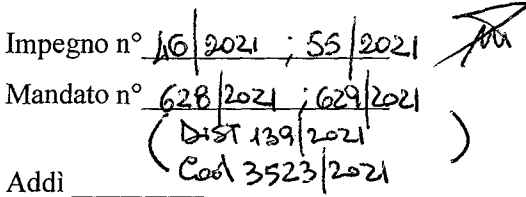 Impegno n° 46/2021 ; 55/2021
Mandato n° 628/2021 ; 629/2021
( Dist 139/2021 )
Cod 3523/2021
Addì